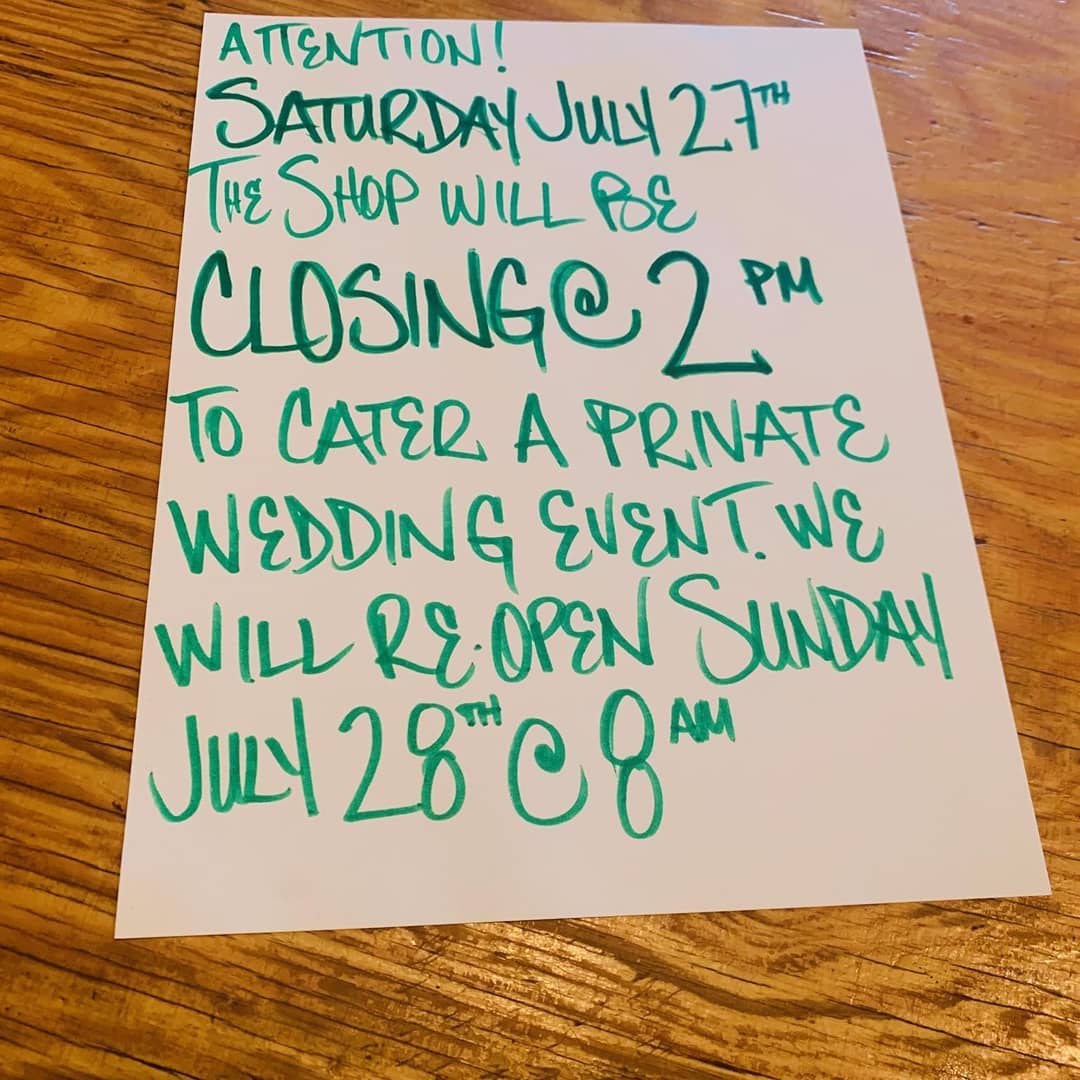 ATTENTION!
SATURDAY JULY 27TH
THE SHOP WILL BE
CLOSING @ 2 PM
TO CATER A PRIVATE
WEDDING EVENT. WE
WILL RE-OPEN SUNDAY
JULY 28TH @ 8 AM